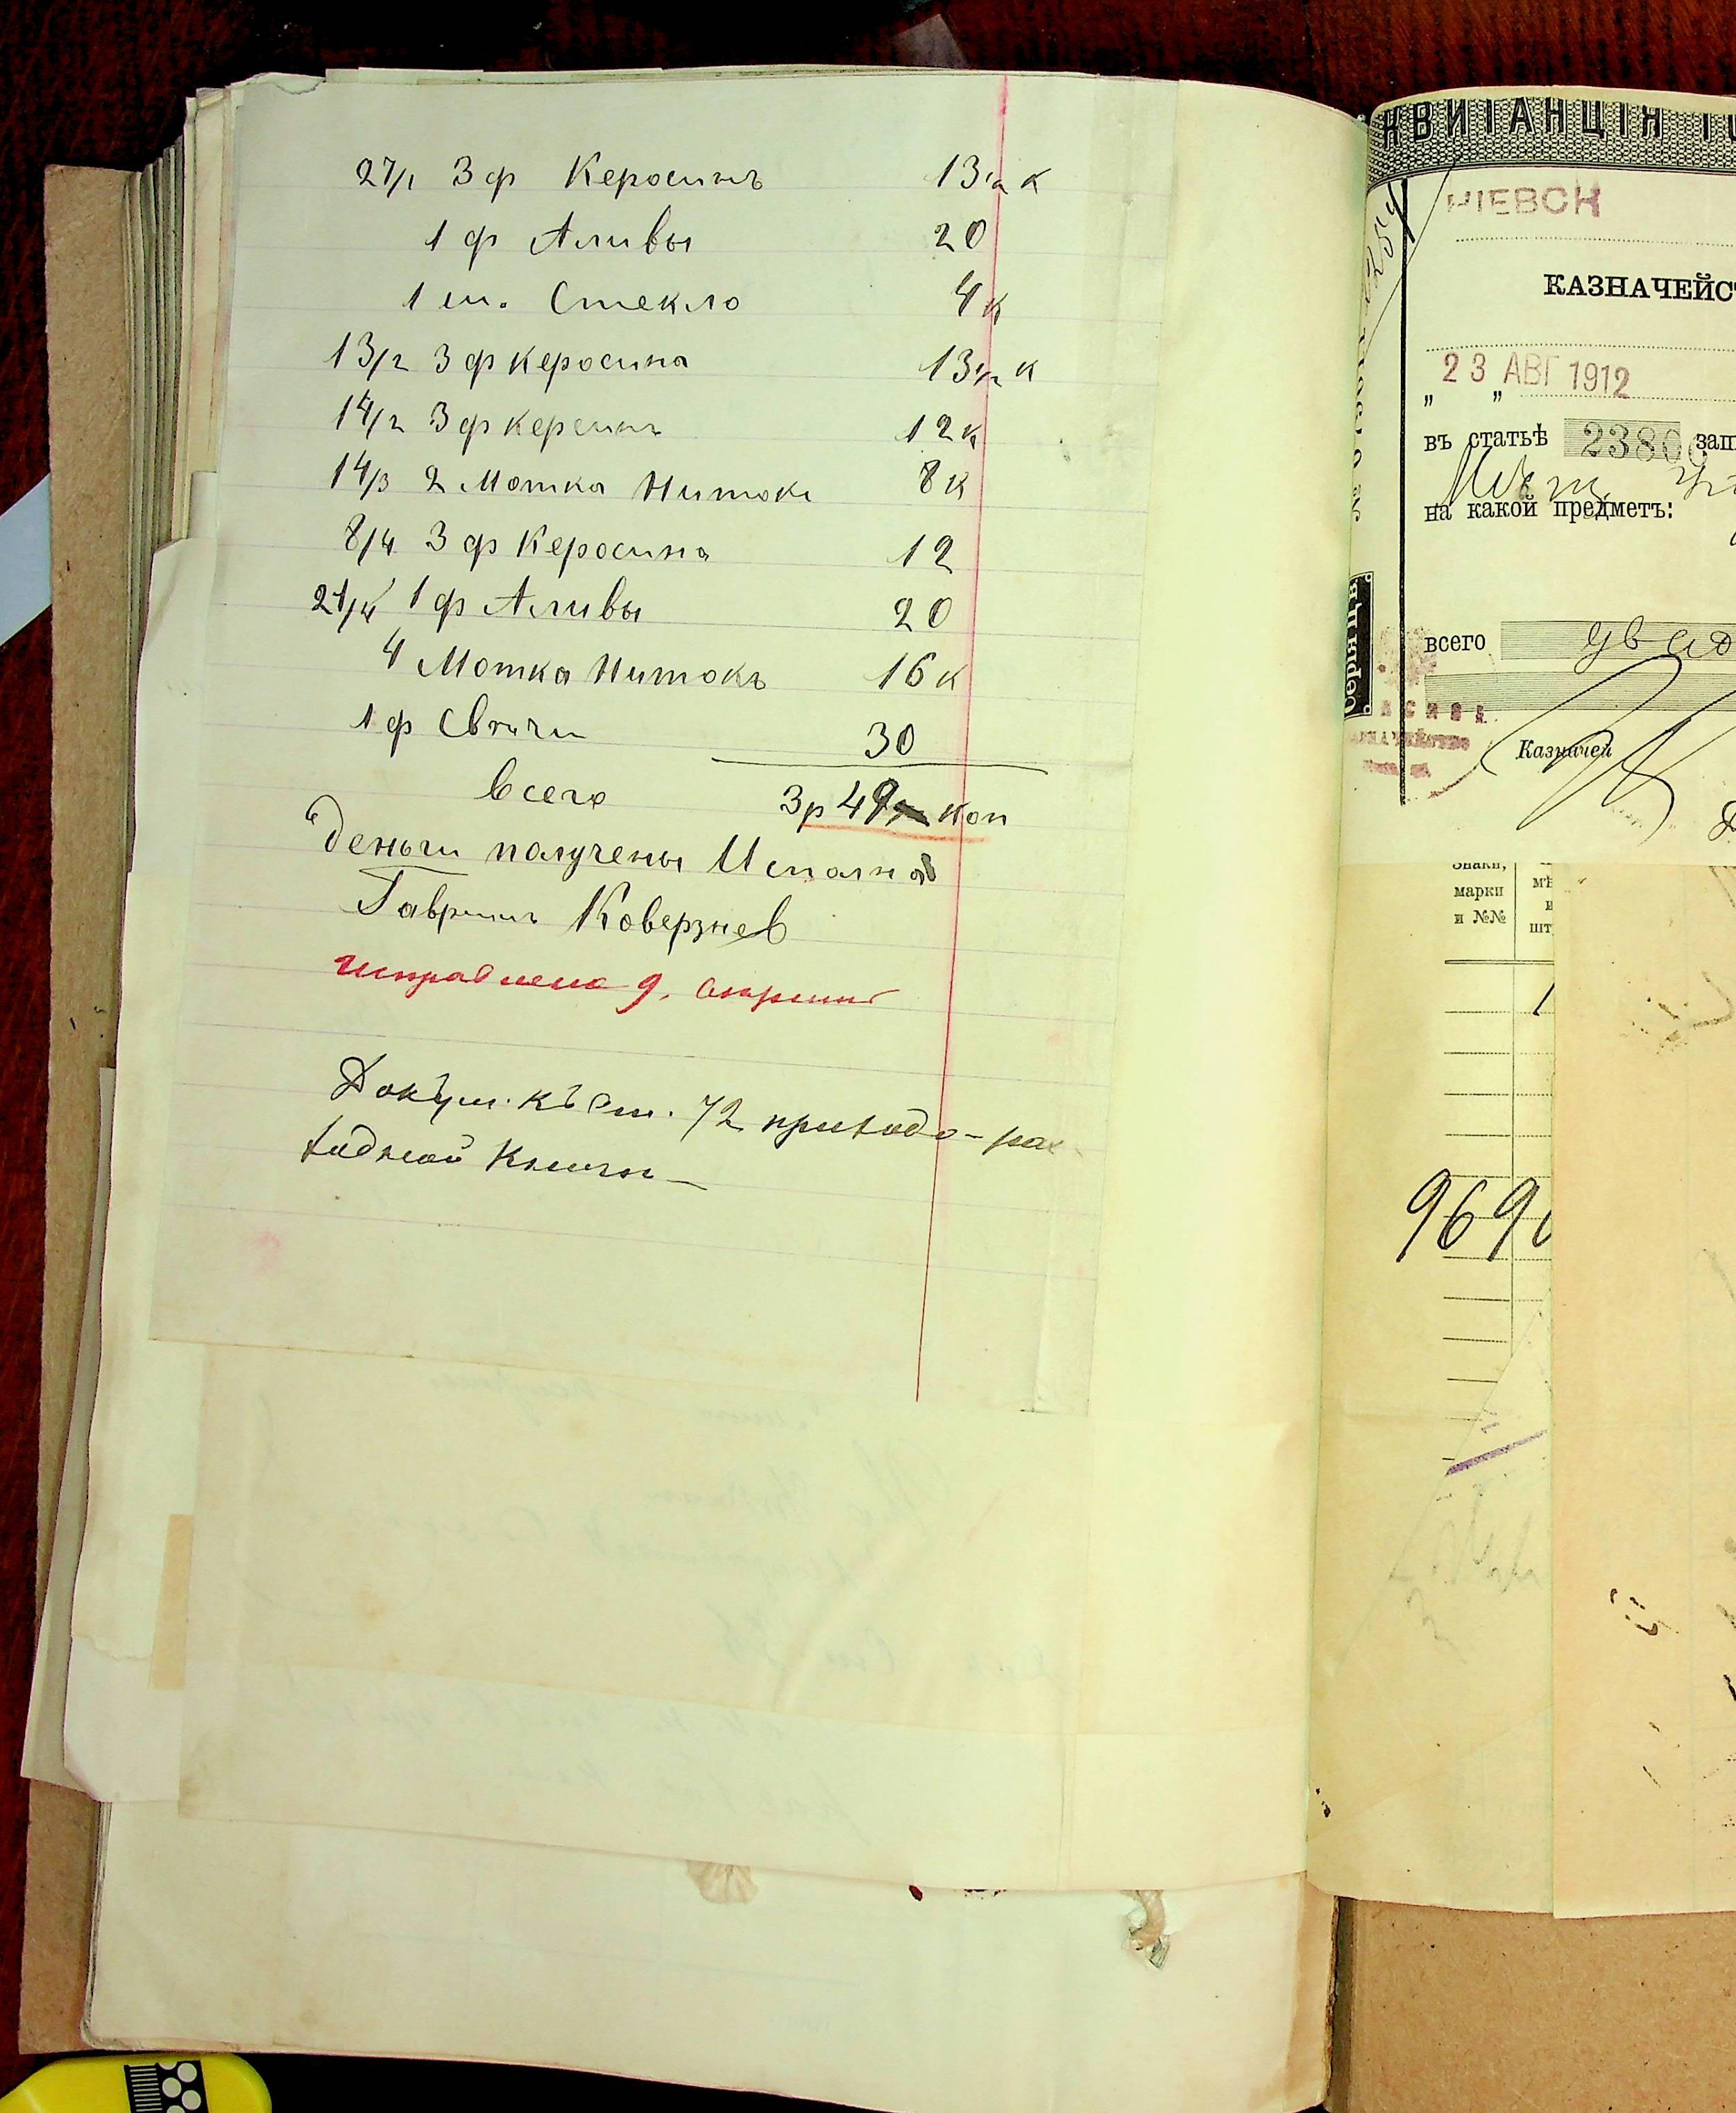 27/1 3 ф Керосинъ 13 1/2 к
1 ф Аливы 20
1 ш. Стекло 4 к
13/2 3 ф Керосина 13 1/2 к
14/2 3 ф керсинъ 12 к
14/3 2 Мотка Нитокъ 8 к
8/4 3 ф Керосина 12
21/4 1 ф Аливы 20
4 Мотка Нитокъ 16 к
1 ф Свѣчи 30
всего 3 р 49 коп
деньги получены Исполна
Гаврилъ Коверзнев
Докум. къ ст. 72 приходо-рас
ходной Книги
КВИТАНЦІЯ
КІЕВСК
КАЗНАЧЕЙС
23 АВГ 1912
въ статьѣ 2380 зап
на какой предметъ:
всего двад
Казначей
Серія Ц.В.
знаки,
марки
и №№
мѣ
и
шт
969